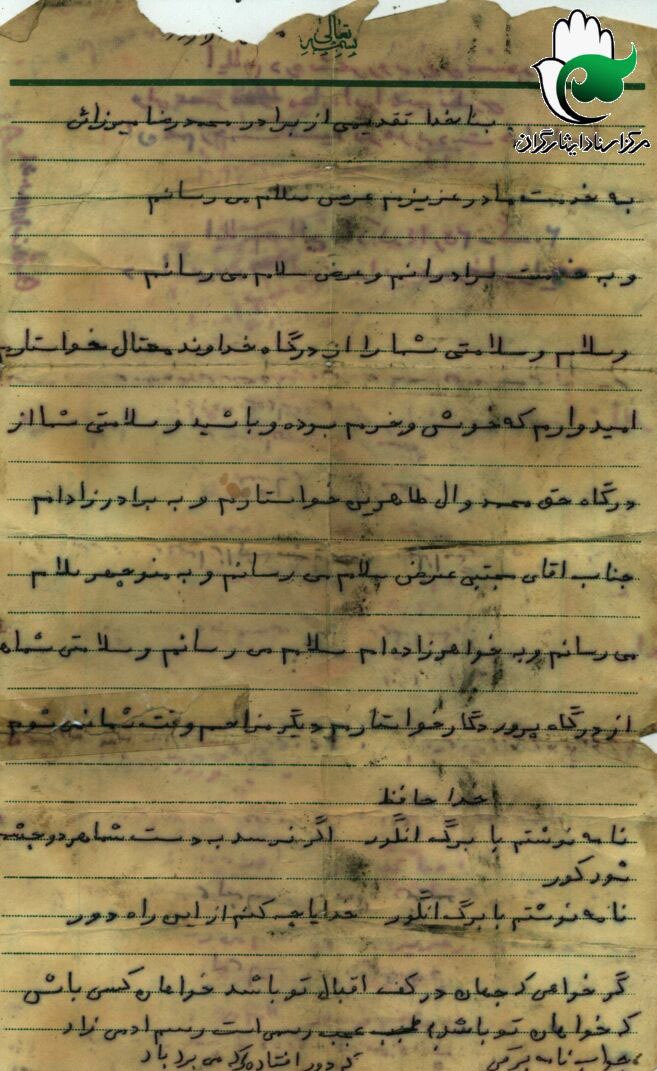 بسمه تعالی
مرکز اسناد ایثارگران
بنام خدا تقدیمی از برادر محمدرضا
به خدمت مادر عزیزم عرض سلام می رسانم
و به خدمت برادرانم و عرض سلام می رسانم
و سلام و سلامتی شما را از درگاه خداوند معتال خواستارم
امیدوارم که خوش و خرم بوده و باشید و سلامتی شما از
درگاه حق محمد وال طاهرین خواستارم و به برادرزادام
جناب اقای مجتبی عرض سلام می رسانم و به منوچهر سلام
می رسانم و به خواهرزاده ام سلام می رسانم و سلامتی شما
از درگاه پروردگار خواستارم دیگر مزاحم وقت شما نمی شوم
خدا حافظ
نامه نوشتم با برگ انگور اگر نرسد بدست شما هر دو چشم
شود کور
نامه نوشتم با برگ انگور خدایا چه کنم از این راه دور
گر خواهی که جهان در کف اقبال تو باشد خواهان کسی باش
که خواهان تو باشد عجب رسمی است رسم ادمی زاد
که دور افتاده را کی می برد یاد
جواب نامه